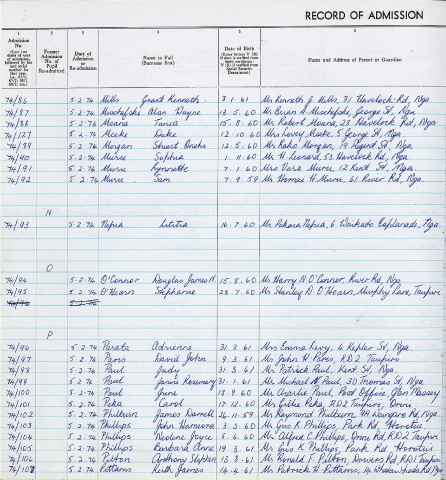 RECORD OF ADMISSION
1 2 3 4 5 6
Admission No. Former Admission No. of Pupil Re-admitted Date of Admission or Re-admission Name in Full (Surname first) Date of Birth Name and Address of Parent or Guardian
74/86 5.2.74 Mills Grant Kenneth 3.1.61 Mr Kenneth J Mills, 31 Havelock Rd, Nga
74/87 5.2.74 Alan Wayne 13.5.60 Mr Brian A George St, Nga
74/88 5.2.74 Moana Tania 15.8.60 Mr Robert Moana, 28 Havelock Rd, Nga
74/127 5.2.74 Duke 12.10.60 Mrs Lovey 5 George St, Nga
74/89 5.2.74 Morgan Stuart 12.5.60 Mr Rako Morgan, 79 Regent St, Nga
74/90 5.2.74 Muru Sophia 1.11.60 Mr H Leonard, 53 Havelock Rd, Nga
74/91 5.2.74 Muru Lynnette 7.1.60 Mrs Vera Muru, 12 Kent St, Nga
74/92 5.2.74 Muru Sam 7.9.59 Mr Homai H Muru, 61 River Rd, Nga
N
74/93 5.2.74 Nepia Letitia 16.7.60 Mr Pakara Nepia, 6 Waikato Esplanade, Nga
O
74/94 5.2.74 O'Connor Douglas James N. 15.8.60 Mr Harry N O'Connor, River Rd, Nga
74/95 5.2.74 O'Hearn Stephanie 28.7.60 Mr Stanley D. O'Hearn, Murphy Lane, Taupiri
74/96 5.2.74
P
74/96 5.2.74 Parata Adrienne 31.3.61 Mrs Emma Levy, 4 Kepler St, Nga
74/97 5.2.74 Paris David John 9.3.61 Mr John H Paris, R.D.2 Taupiri
74/98 5.2.74 Paul Judy 31.3.61 Mr Patrick Paul, Kent St, Nga
74/99 5.2.74 Paul Janine Rosemary 31.1.61 Mr Michael N Paul, 30 Thomas St, Nga
74/100 5.2.74 Paul June 13.9.60 Mr Charlie Paul, Post Office, Glen Massey
74/101 5.2.74 Peka Carol 17.12.60 Mrs Gillie Peka, R.D.2 Taupiri, Orini
74/102 5.2.74 James Darrell 26.11.59 Mr Raymond Rd, Nga
74/103 5.2.74 Phillips John 3.3.60 Mr Gus K Phillips, Park Rd, Horotiu
74/104 5.2.74 Phillips Nicolene Joyce 6.6.60 Mr Alfred C. Phillips, Orini Rd R.D.2 Taupiri
74/105 5.2.74 Phillips Barbara Anne 19.3.61 Mr Gus K Phillips, Park Rd, Horotiu
74/106 5.2.74 Pilton Anthony Stephen 13.8.61 Mr Ronald F. Pilton, Rd R.D.1 Taupiri
74/107 5.2.74 Keith James 4.4.61 Mr Patrick H Rd Nga